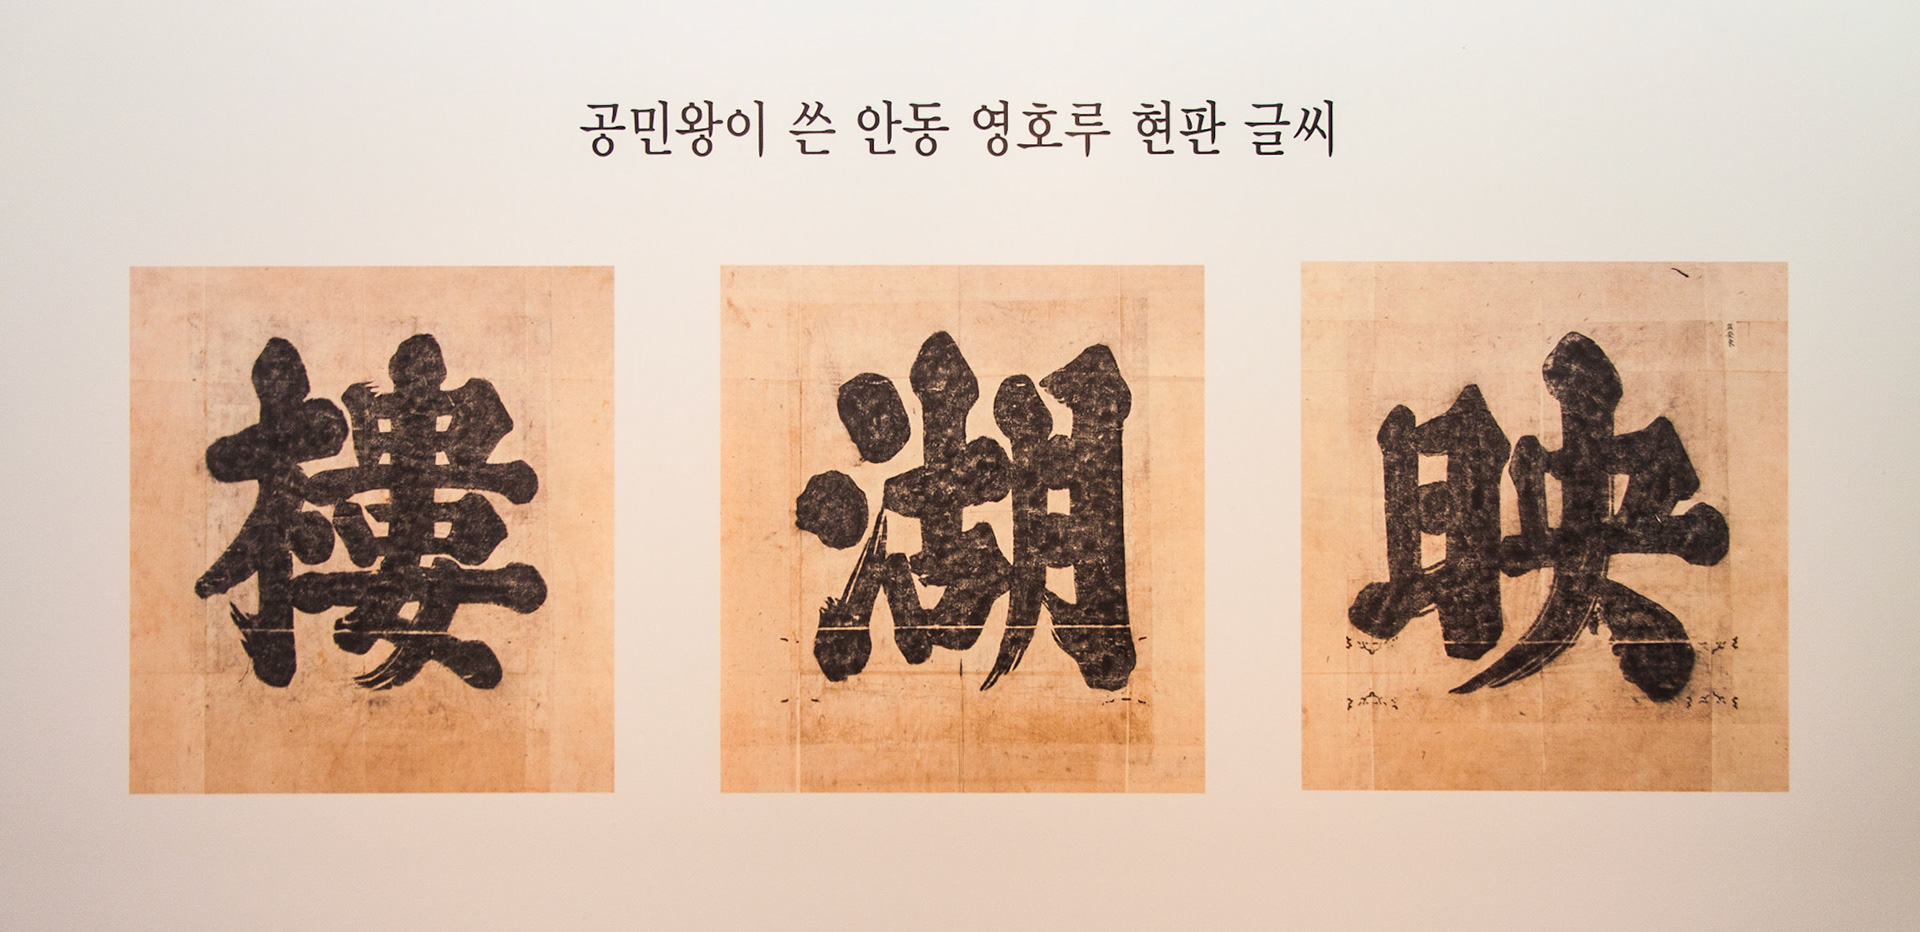 공민왕이 쓴 안동 영호루 현판 글씨
映湖樓